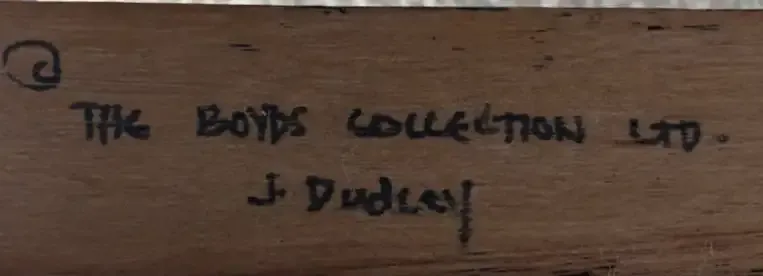 ©
THE BOYDS COLLECTION LTD.
J. Dudley